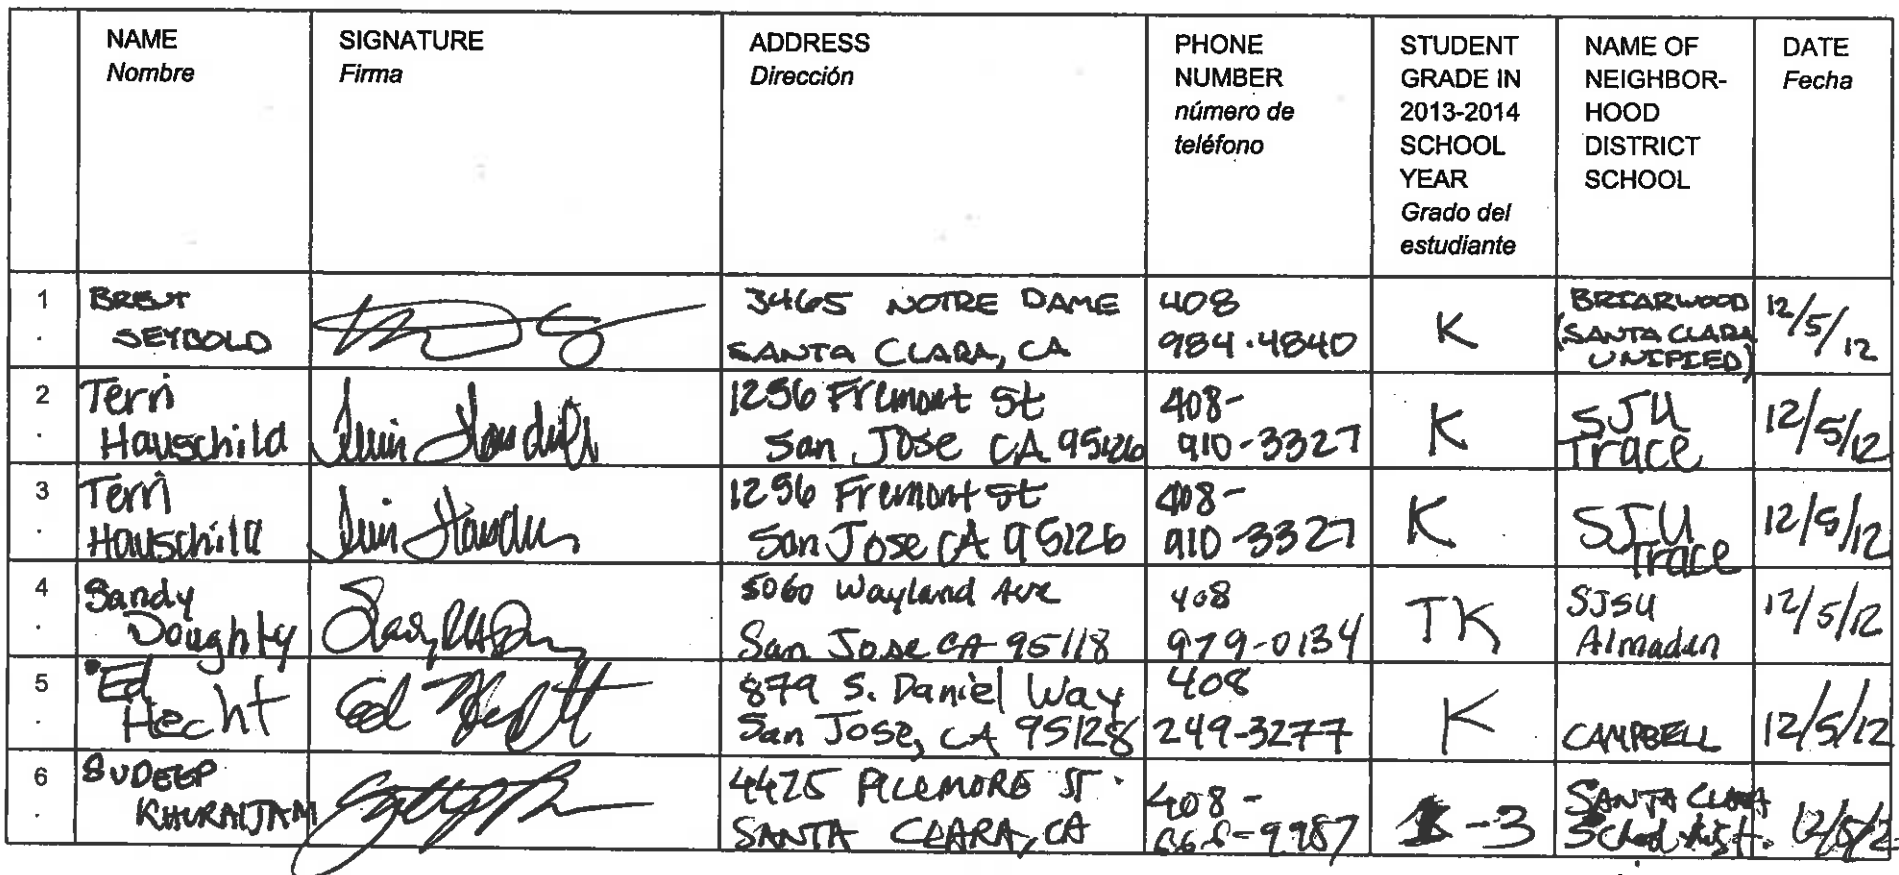 NAME
Nombre
SIGNATURE
Firma
ADDRESS
Dirección
PHONE
NUMBER
número de
teléfono
STUDENT
GRADE IN
2013-2014
SCHOOL
YEAR
Grado del
estudiante
NAME OF
NEIGHBOR-
HOOD
DISTRICT
SCHOOL
DATE
Fecha
1
.
BRENT
SEYBOLD
3465 NOTRE DAME
SANTA CLARA, CA
408
984.4840
K
BRIARWOOD
(SANTA CLARA
UNIFIED)
12/5/12
2
.
Terri
Hauschild
1256 Fremont St
San Jose CA 95126
408-
910-3327
K
SJU
Trace
12/5/12
3
.
Terri
Hauschild
1256 Fremont St
San Jose CA 95126
408-
910-3327
K
SJU
Trace
12/5/12
4
.
Sandy
Doughty
5060 Wayland Ave
San Jose CA 95118
408
979-0134
TK
SJSU
Almaden
12/5/12
5
.
Ed
Hecht
Ed Hecht
879 S. Daniel Way
San Jose, CA 95128
408
249-3277
K
CAMPBELL
12/5/12
6
.
SUDEEP
KHURAIJAM
4425 ST.
SANTA CLARA, CA
408-
-3
SANTA CLARA
School Dist.
12/5/12